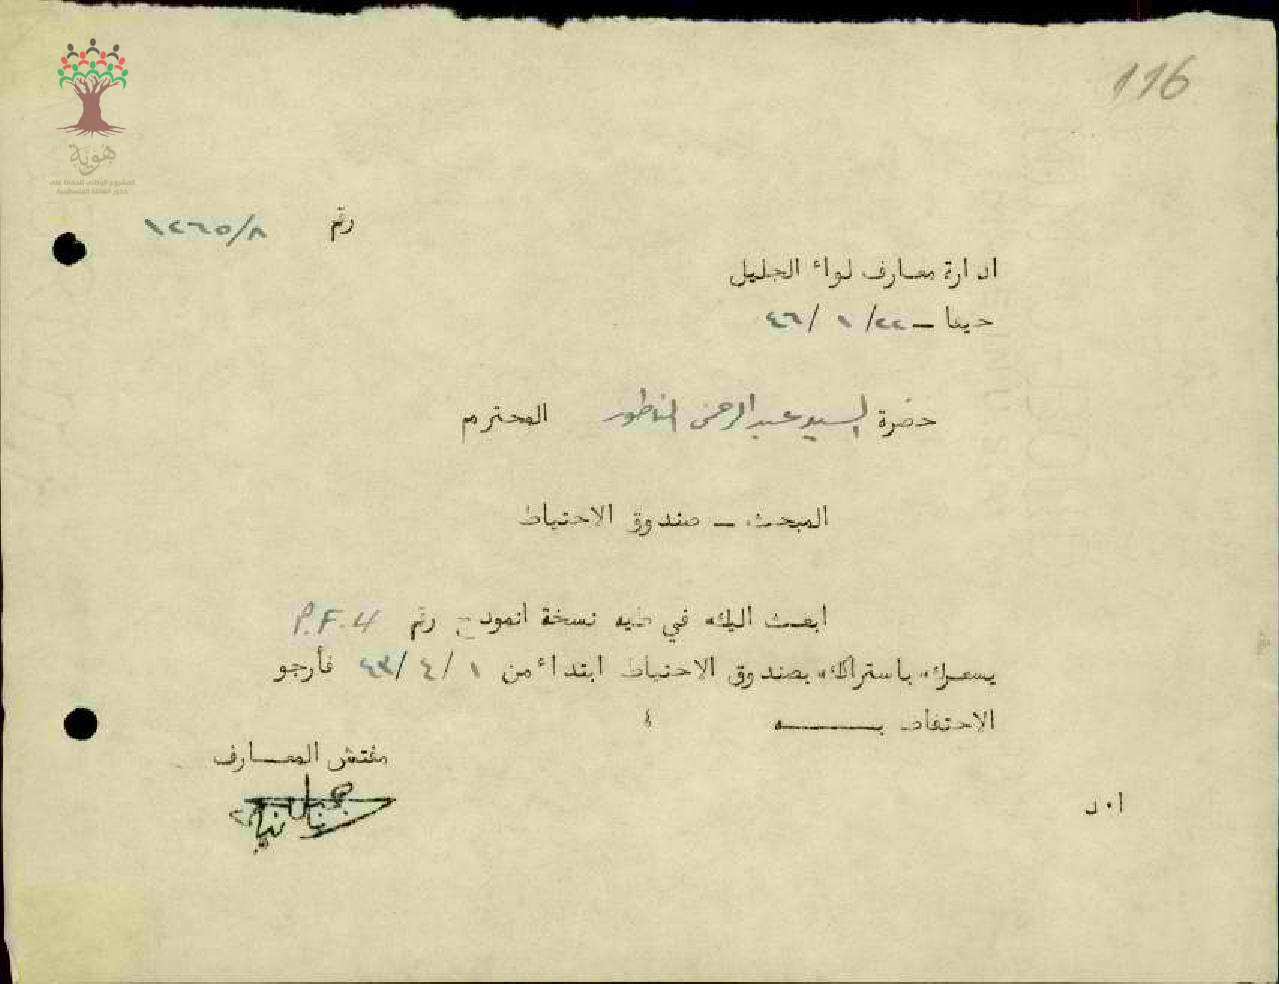 116
هوية
المشروع الوطني للحفاظ على
جذور العائلة الفلسطينية
رقم ١٢٦٥/٨
ادارة معارف لواء الجليل
حيفا – ٢٢/ ١ /٤٦
حضرة السيد عبد الرحمن الناطور المحترم
المبحث – صندوق الاحتياط
ابعث اليك في طيه نسخة انموذج رقم P.F.4
يشعرك باشتراكك بصندوق الاحتياط ابتداء من ١ /٤ /٤٣ فأرجو
الاحتفاظ بـــــه ؛
مفتش المعارف
ا٠د